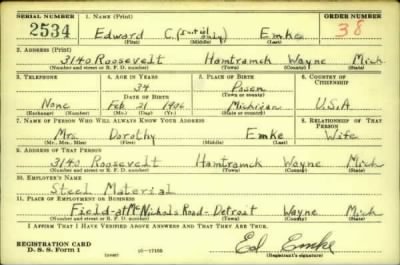 SERIAL NUMBER 1. NAME (Print) ORDER NUMBER
2534 Edward C. (Initial only) Emke 38
(First) (Middle) (Last)
2. ADDRESS (Print)
3140 Roosevelt Hamtramck Wayne Mich
(Number and street or R. F. D. number) (Town) (County) (State)
3. TELEPHONE 4. AGE IN YEARS 5. PLACE OF BIRTH 6. COUNTRY OF CITIZENSHIP
34 Posen
DATE OF BIRTH (Town or county)
None Feb 21 1906 Michigan U.S.A
(Exchange) (Number) (Mo.) (Day) (Yr.) (State or country)
7. NAME OF PERSON WHO WILL ALWAYS KNOW YOUR ADDRESS 8. RELATIONSHIP OF THAT PERSON
Mrs. Dorothy Emke Wife
(Mr., Mrs., Miss) (First) (Middle) (Last)
9. ADDRESS OF THAT PERSON
3140 Roosevelt Hamtramck Wayne Mich
(Number and street or R. F. D. number) (Town) (County) (State)
10. EMPLOYER'S NAME
Steel Material
11. PLACE OF EMPLOYMENT OR BUSINESS
Field-at McNichols Road-Detroit Wayne Mich
(Number and street or R. F. D. number) (Town) (County) (State)
I AFFIRM THAT I HAVE VERIFIED ABOVE ANSWERS AND THAT THEY ARE TRUE.
REGISTRATION CARD
D. S. S. Form 1 (over) 16-17105 Ed Emke
(Registrant's signature)